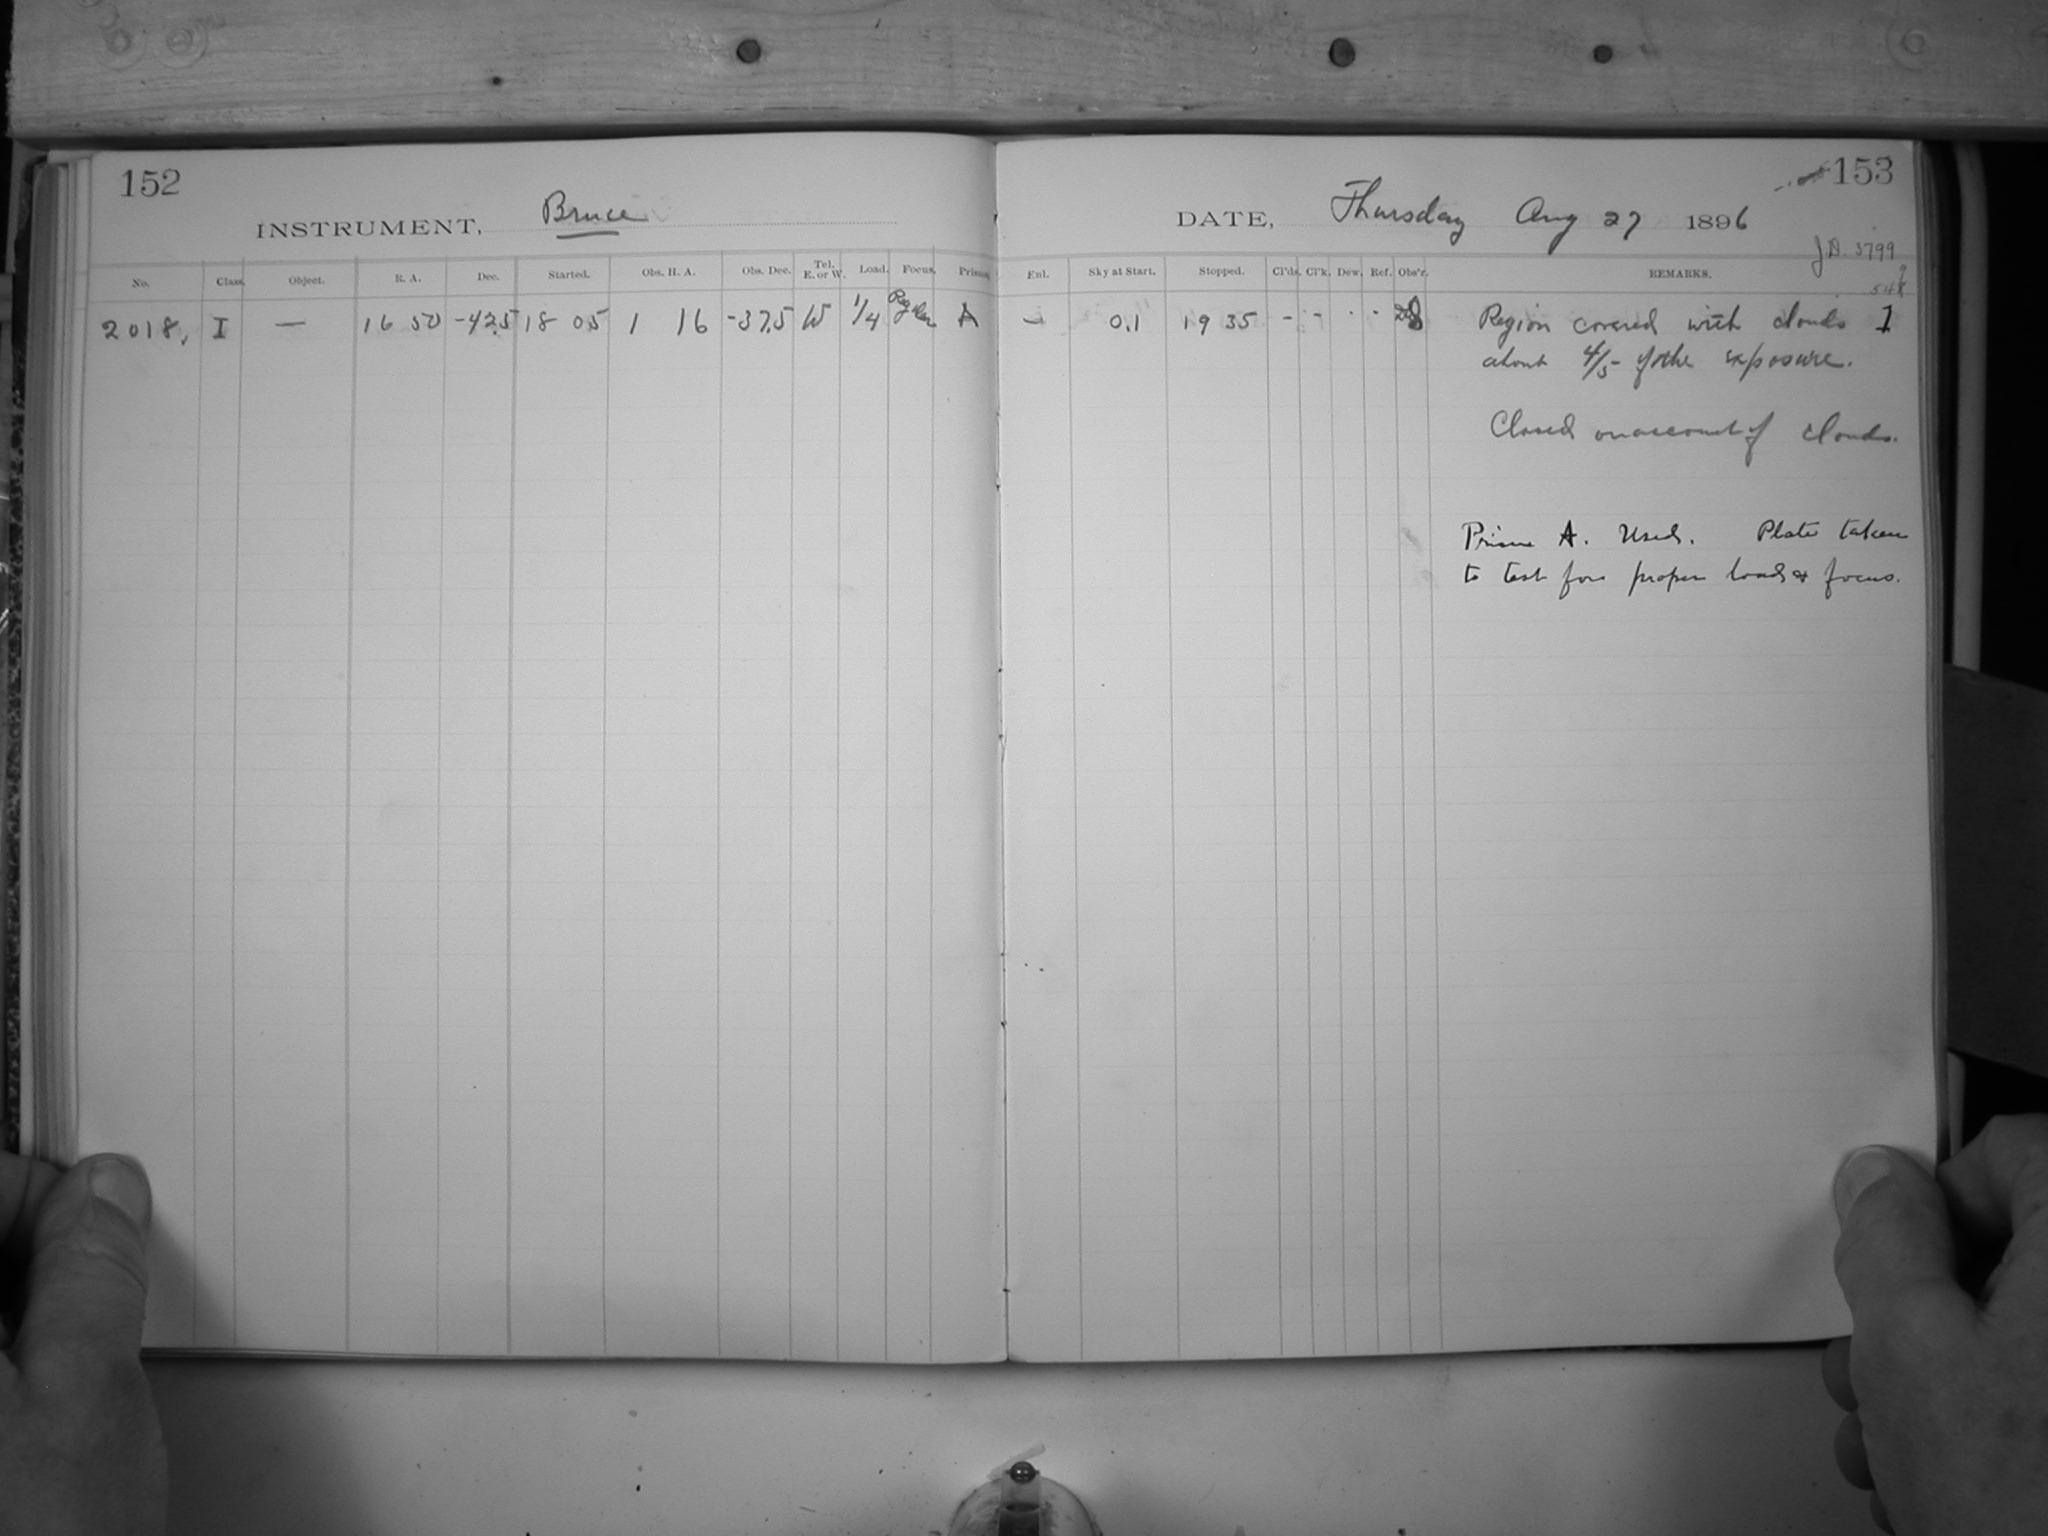 152
INSTRUMENT, Bruce
No. Class. Object. R. A. Dec. Started. Obs. H. A. Obs. Dec. Tel. E. or W. Load. Focus. Prisms.
2018. I — 16 50 -42.5 18 05 1 16 -37.5 W 1/4 A
153
DATE, Thursday Aug 27 1896
J.D. 3799
Enl. Sky at Start. Stopped. Cl'ds. Cl'k. Dew. Ref. Obs'r. REMARKS.
- 0.1 19 35 - - · - Region covered with clouds 1
about 4/5 of the exposure.
Closed on account of clouds.
Prism A. Used. Plate taken
to test for proper load & focus.